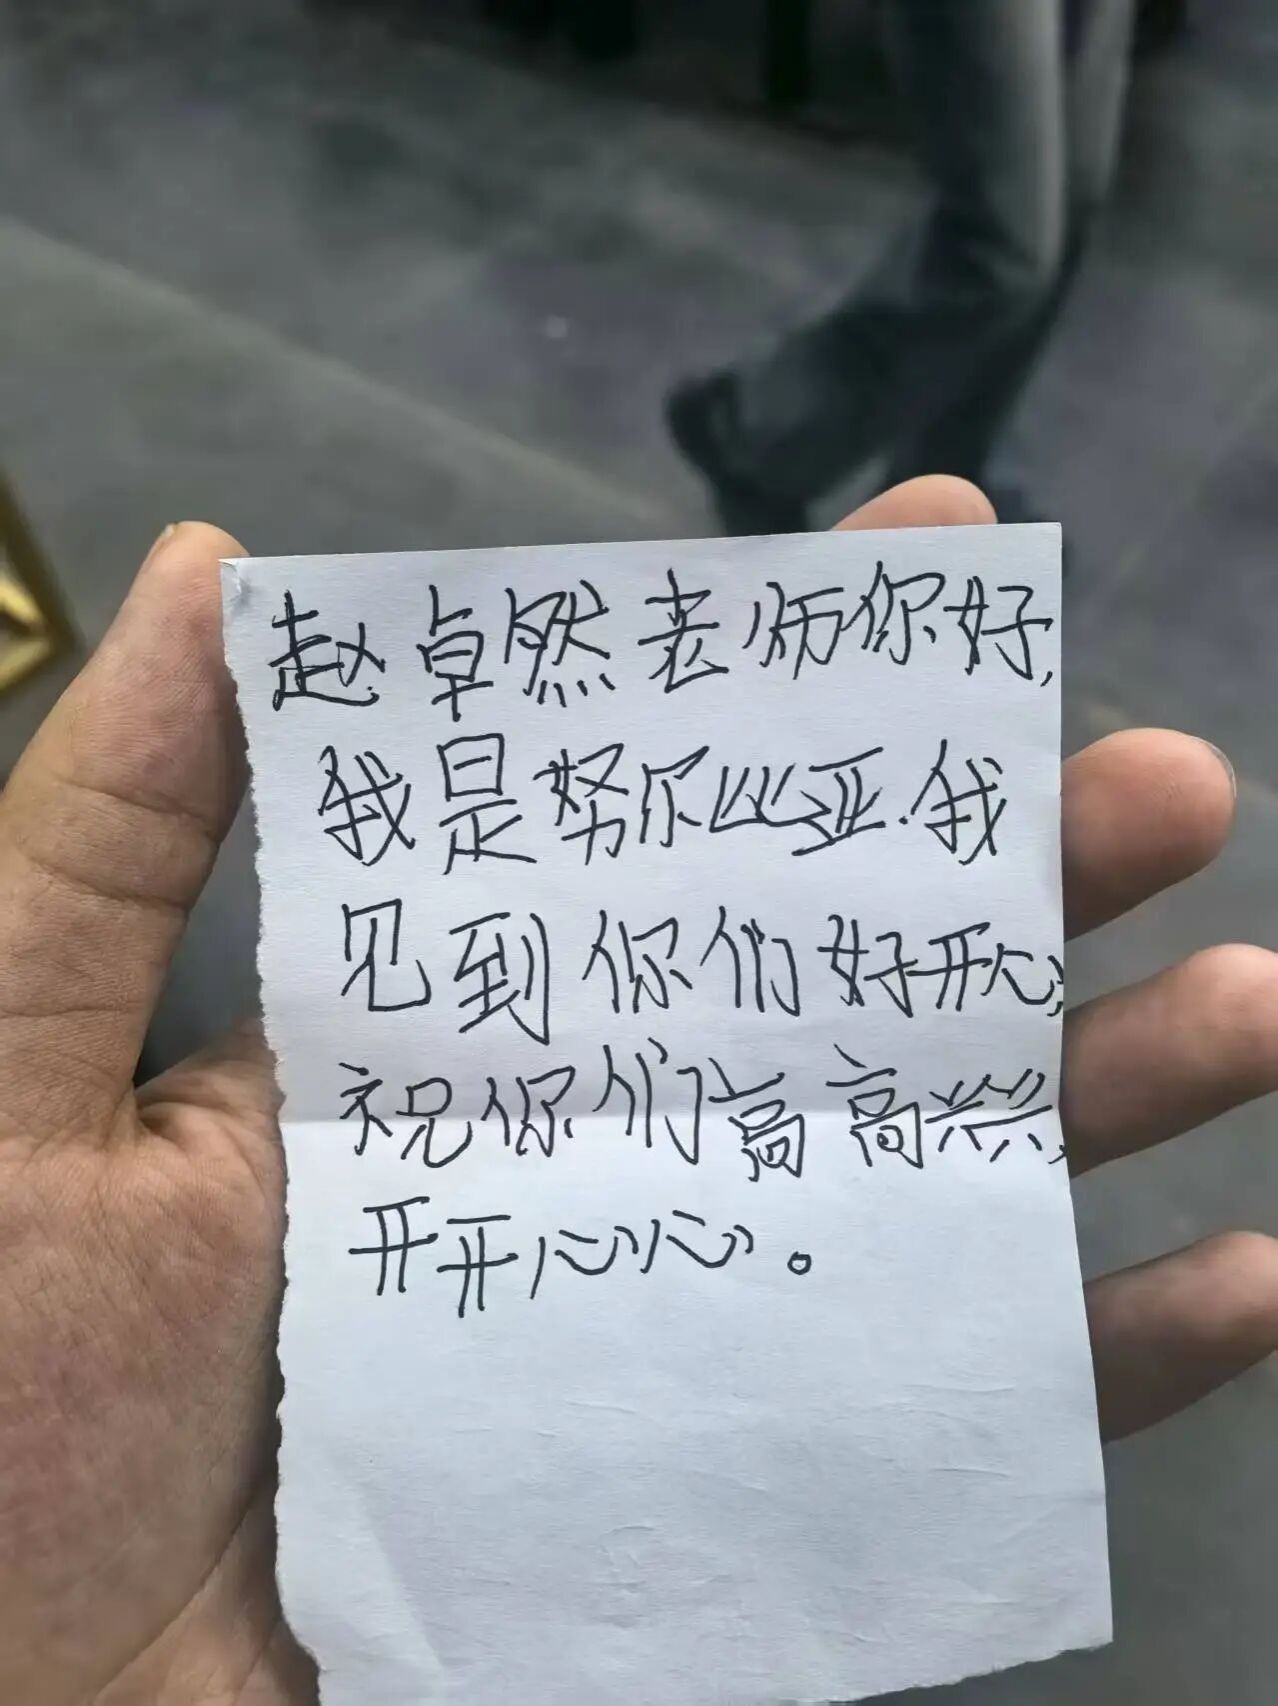 赵卓然老师你好,
我是努尔比亚.我
见到你们好开心,
祝你们高高兴兴,
开开心心。